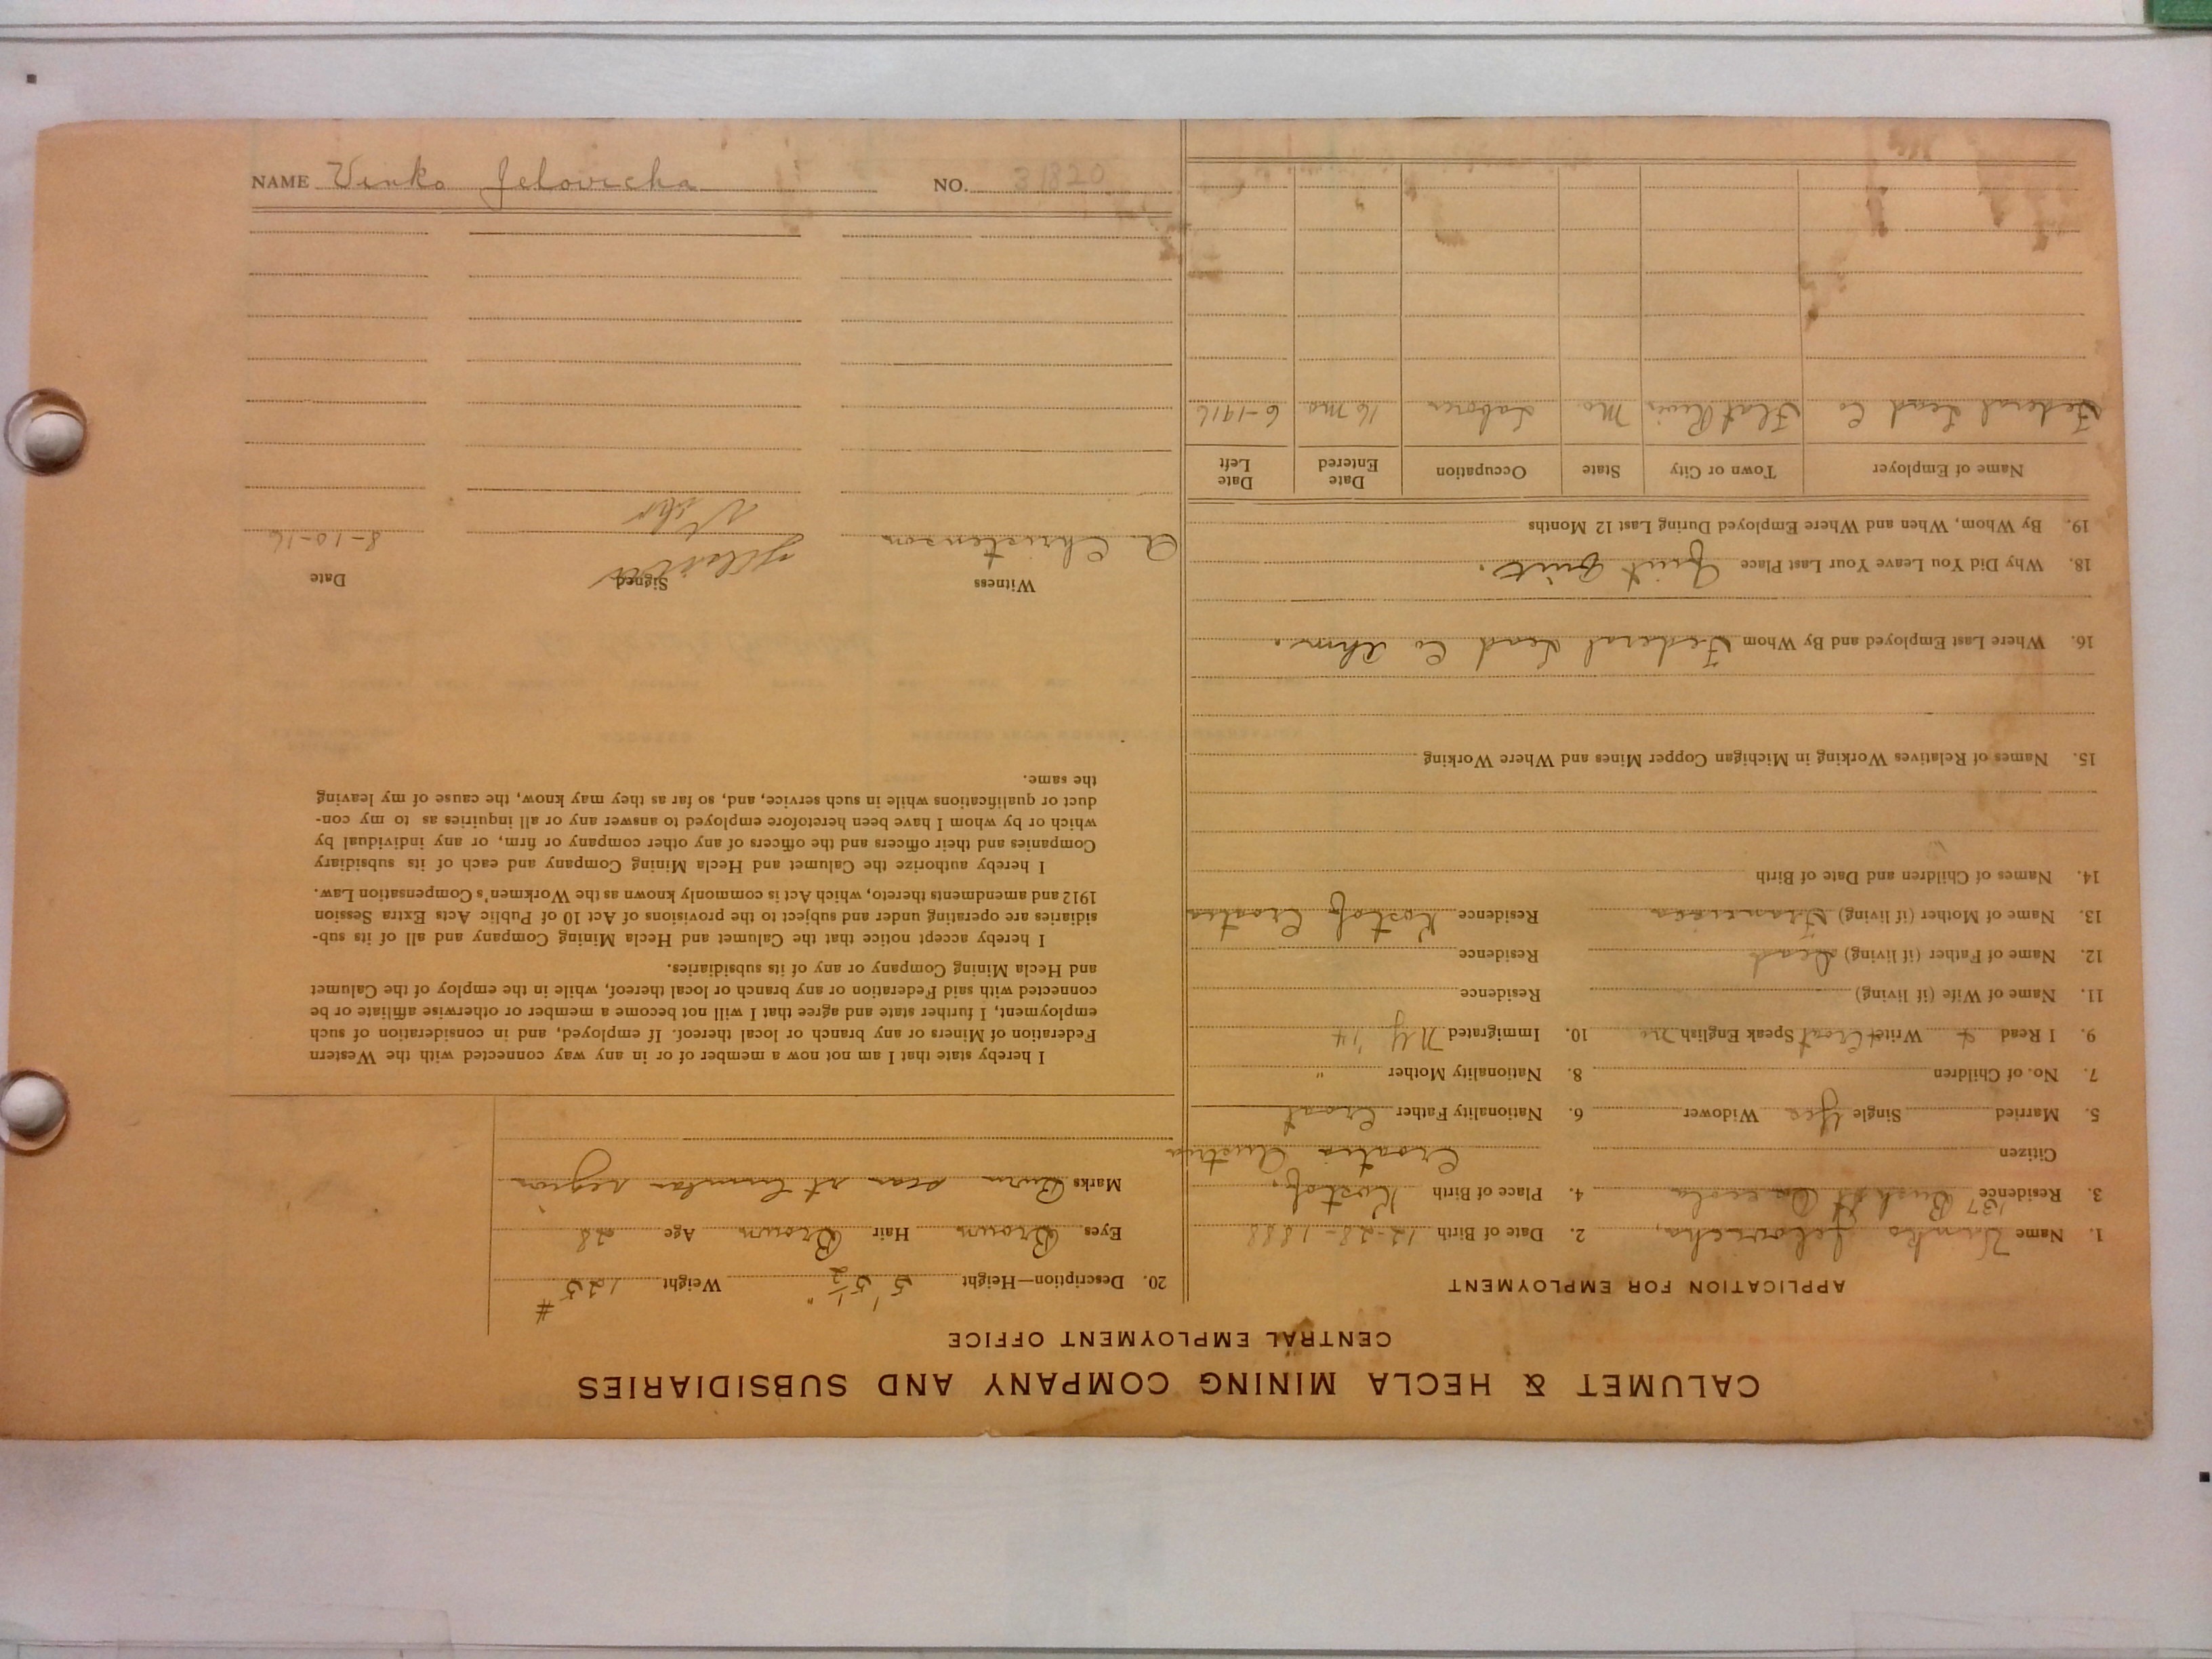 CALUMET & HECLA MINING COMPANY AND SUBSIDIARIES
CENTRAL EMPLOYMENT OFFICE
APPLICATION FOR EMPLOYMENT
1. Name Vinko Jelovicha, 2. Date of Birth 12-28-1888
3. Residence 137 Bush St Osceola 4. Place of Birth Kostof.
Citizen Croatia Austria
5. Married Single Yes Widower 6. Nationality Father Croat
7. No. of Children 8. Nationality Mother "
9. I Read & Write Croat Speak English no 10. Immigrated N Y '14
11. Name of Wife (if living) Residence
12. Name of Father (if living) Dead Residence
13. Name of Mother (if living) Residence Kostof Croatia
14. Names of Children and Date of Birth
15. Names of Relatives Working in Michigan Copper Mines and Where Working
16. Where Last Employed and By Whom Federal Lead Co
18. Why Did You Leave Your Last Place Just Quit.
19. By Whom, When and Where Employed During Last 12 Months
Name of Employer Town or City State Occupation Date Entered Date Left
Federal Lead Co Flat River Mo Laborer 16 Mo 6-1916
20. Description—Height 5' 5½" Weight 125 #
Eyes Brown Hair Brown Age 28
Marks Burn scar rt lumbar region
I hereby state that I am not now a member of or in any way connected with the Western
Federation of Miners or any branch or local thereof. If employed, and in consideration of such
employment, I further state and agree that I will not become a member or otherwise affiliate or be
connected with said Federation or any branch or local thereof, while in the employ of the Calumet
and Hecla Mining Company or any of its subsidiaries.
I hereby accept notice that the Calumet and Hecla Mining Company and all of its sub-
sidiaries are operating under and subject to the provisions of Act 10 of Public Acts Extra Session
1912 and amendments thereto, which Act is commonly known as the Workmen's Compensation Law.
I hereby authorize the Calumet and Hecla Mining Company and each of its subsidiary
Companies and their officers and the officers of any other company or firm, or any individual by
which or by whom I have been heretofore employed to answer any or all inquiries as to my con-
duct or qualifications while in such service, and, so far as they may know, the cause of my leaving
the same.
Witness Signed Date
A. Christenson 8-10-16
NAME Vinko Jelovicha NO. 31820